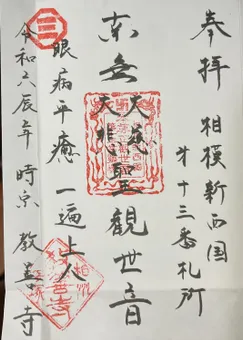 奉拝 相模新西国
第十三番札所
南無大慈大悲聖観世音
眼病平癒 一遍上人
令和六辰年 時宗 教善寺